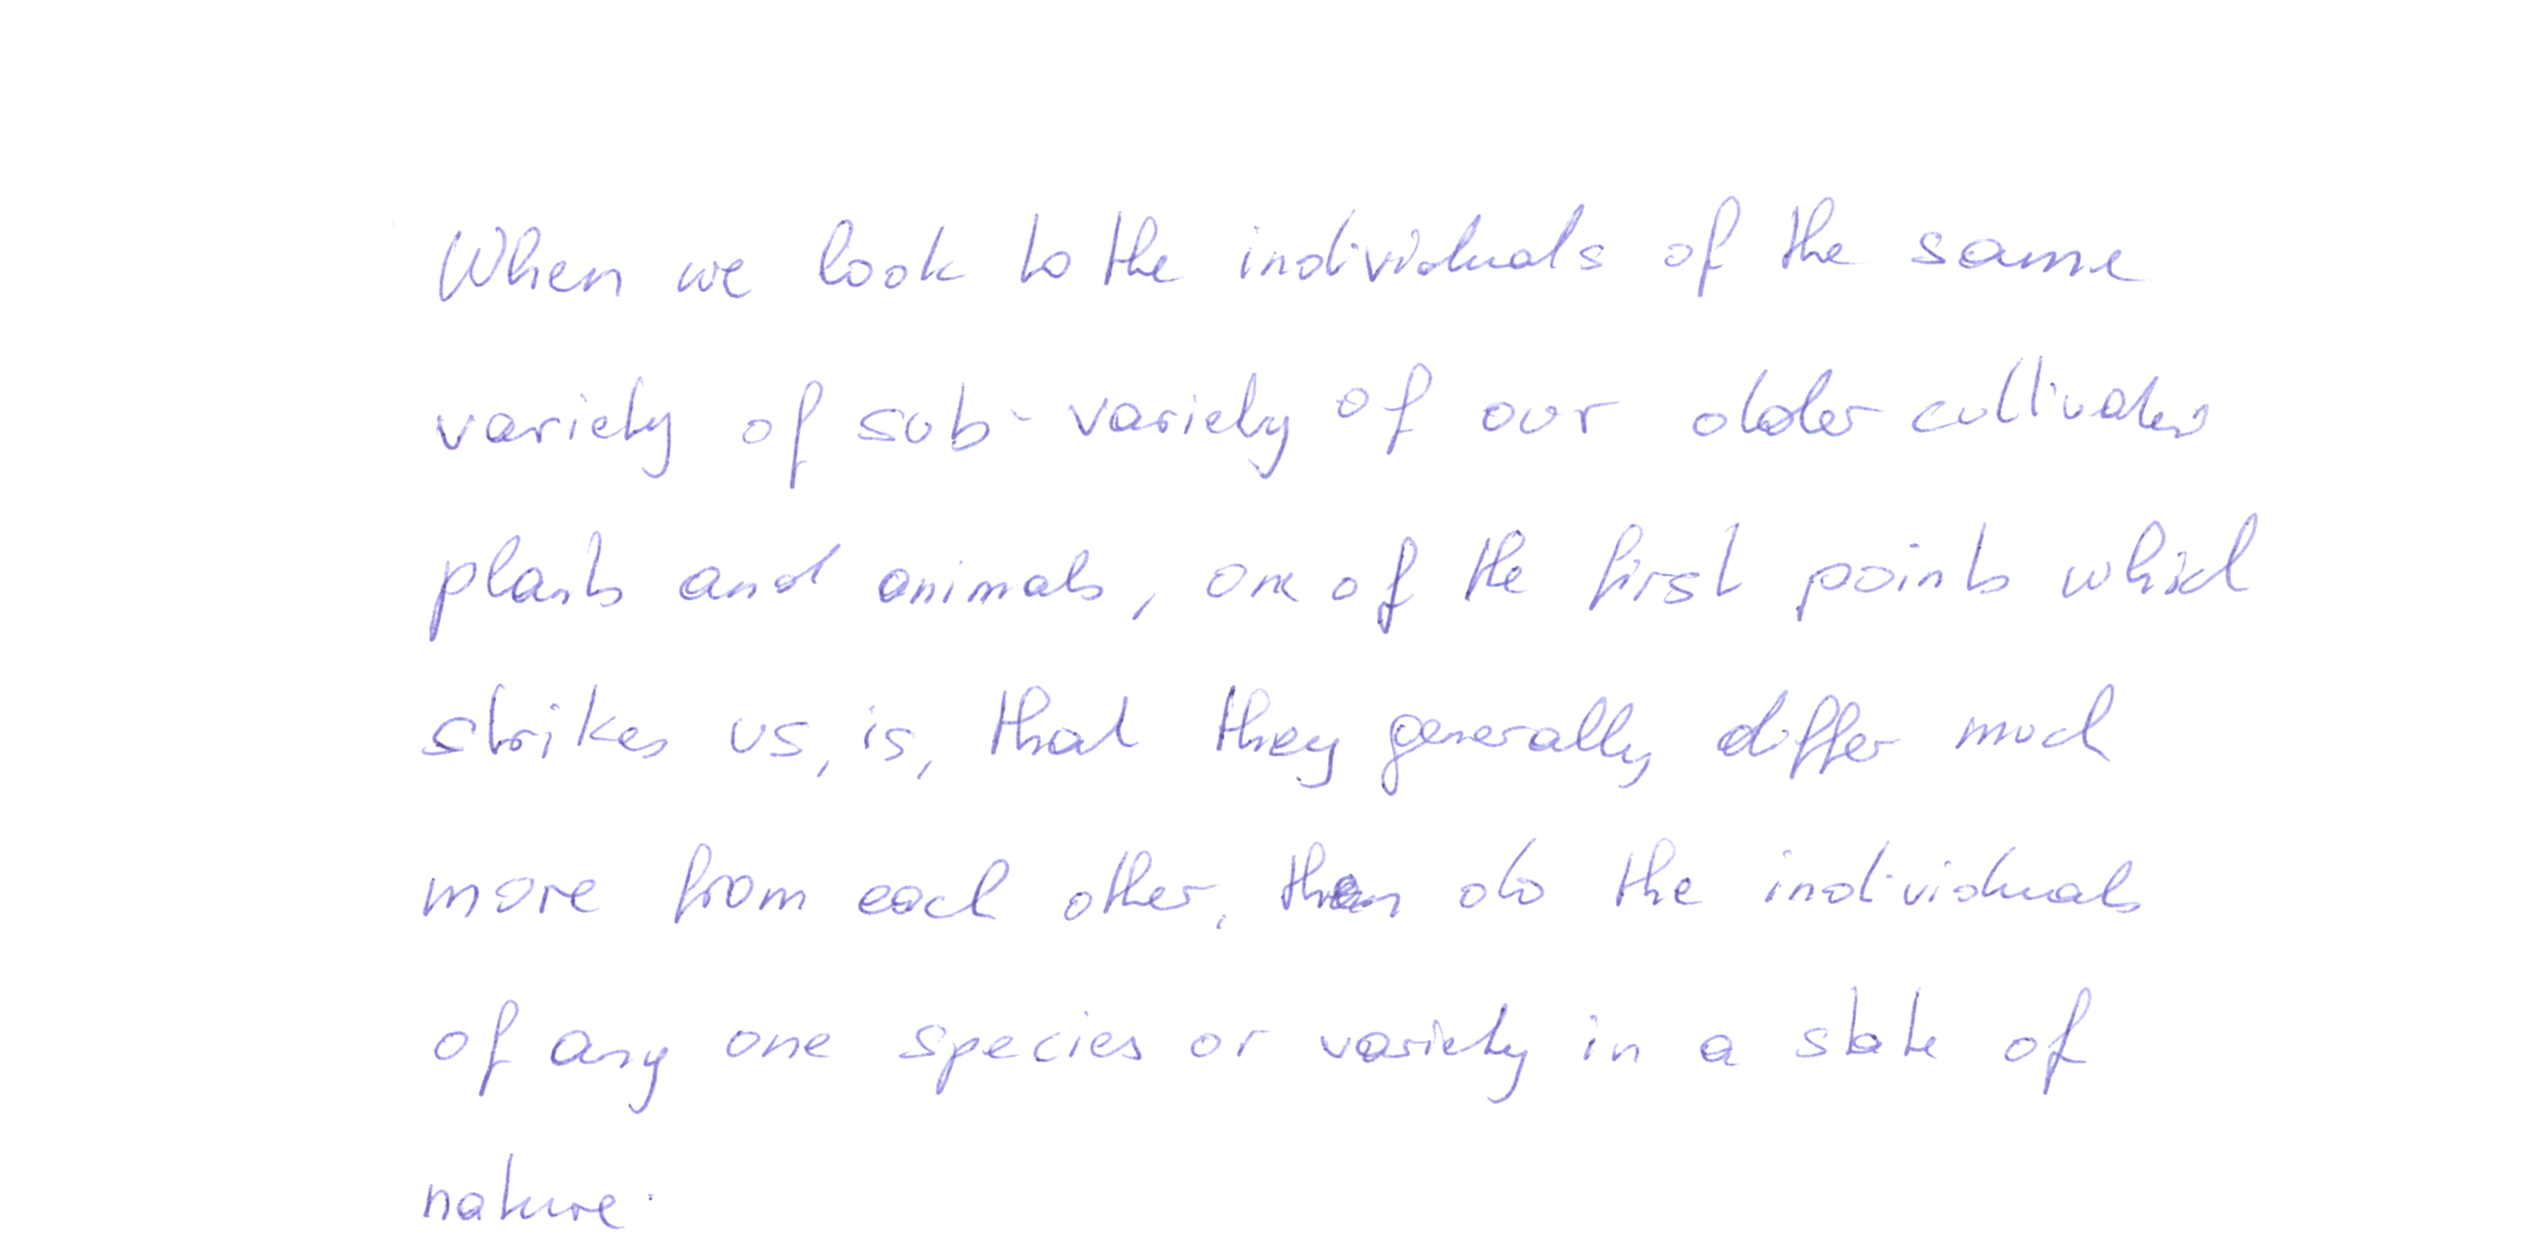 When we look to the individuals of the same
variety of sub-variety of our older cultivated
plants and animals, one of the first points which
strikes us, is, that they generally differ much
more from each other, than do the individuals
of any one species or variety in a state of
nature.